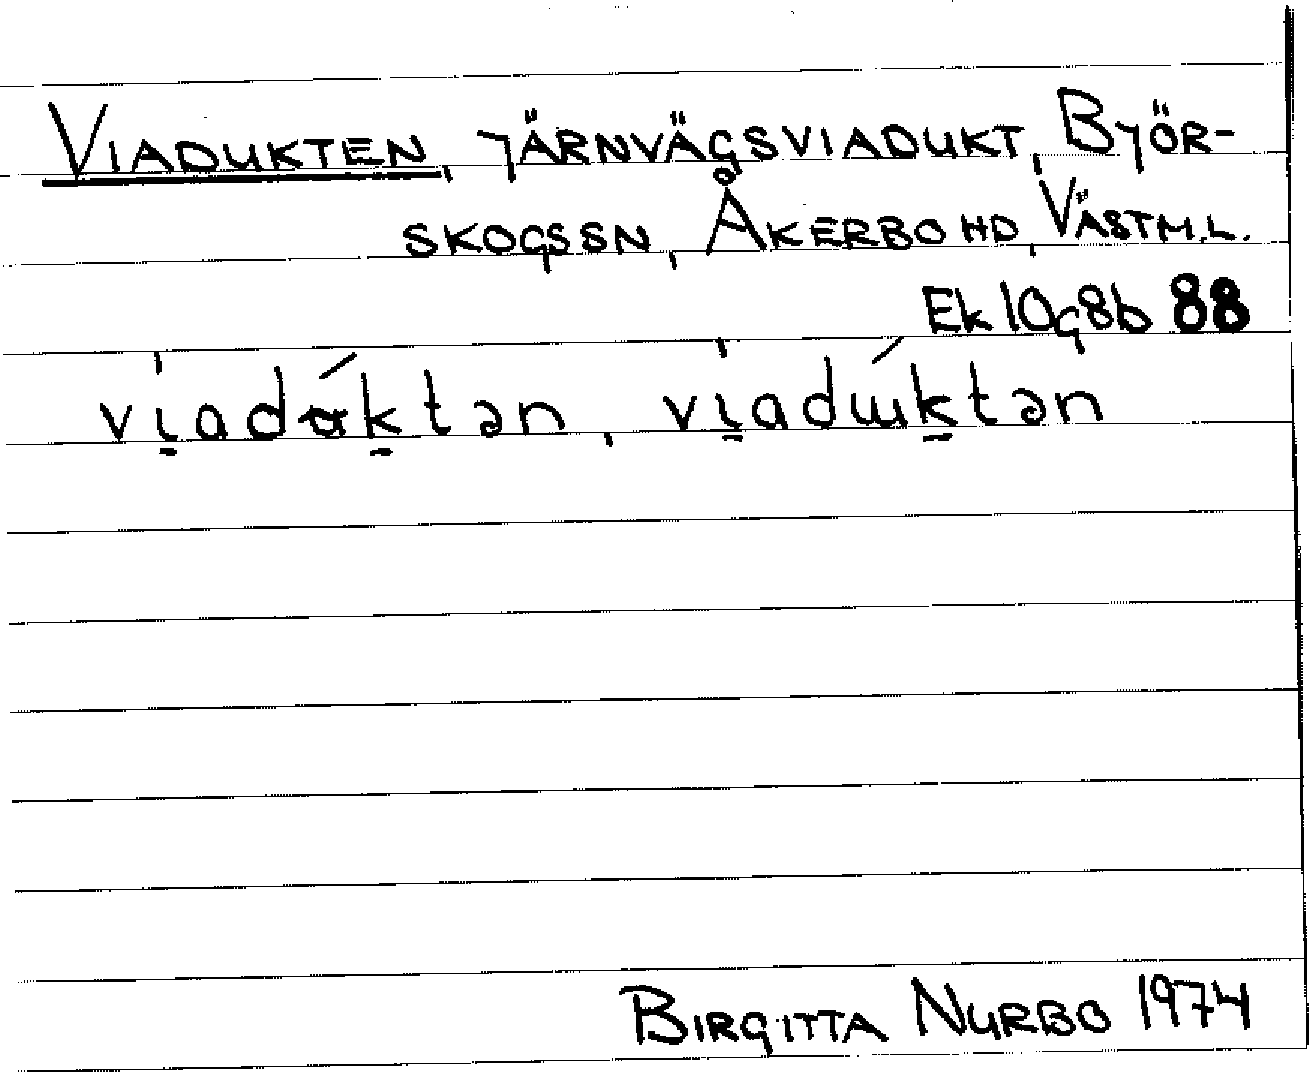 VIADUKTEN, JÄRNVÄGSVIADUKT, BJÖR-
SKOGS SN, ÅKERBO HD, VÄSTM.L.
Ek 10g8b 88
viadɵ́ktən, viadúktən
BIRGITTA NURBO 1974